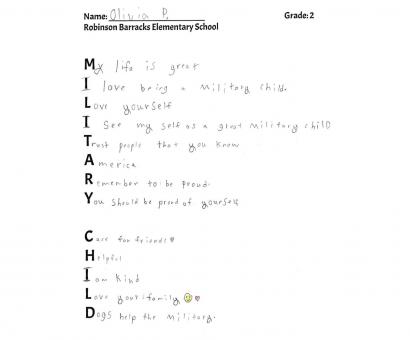 Name: Olivia P. Grade: 2
Robinson Barracks Elementary School
My life is great
I love being a military child.
Love yourself
I see my self as a great military child
Trust people that you know
America
Remember to be proud.
You should be proud of yourself
Care for friends
Helpful
I am kind
Love your family
Dogs help the military.